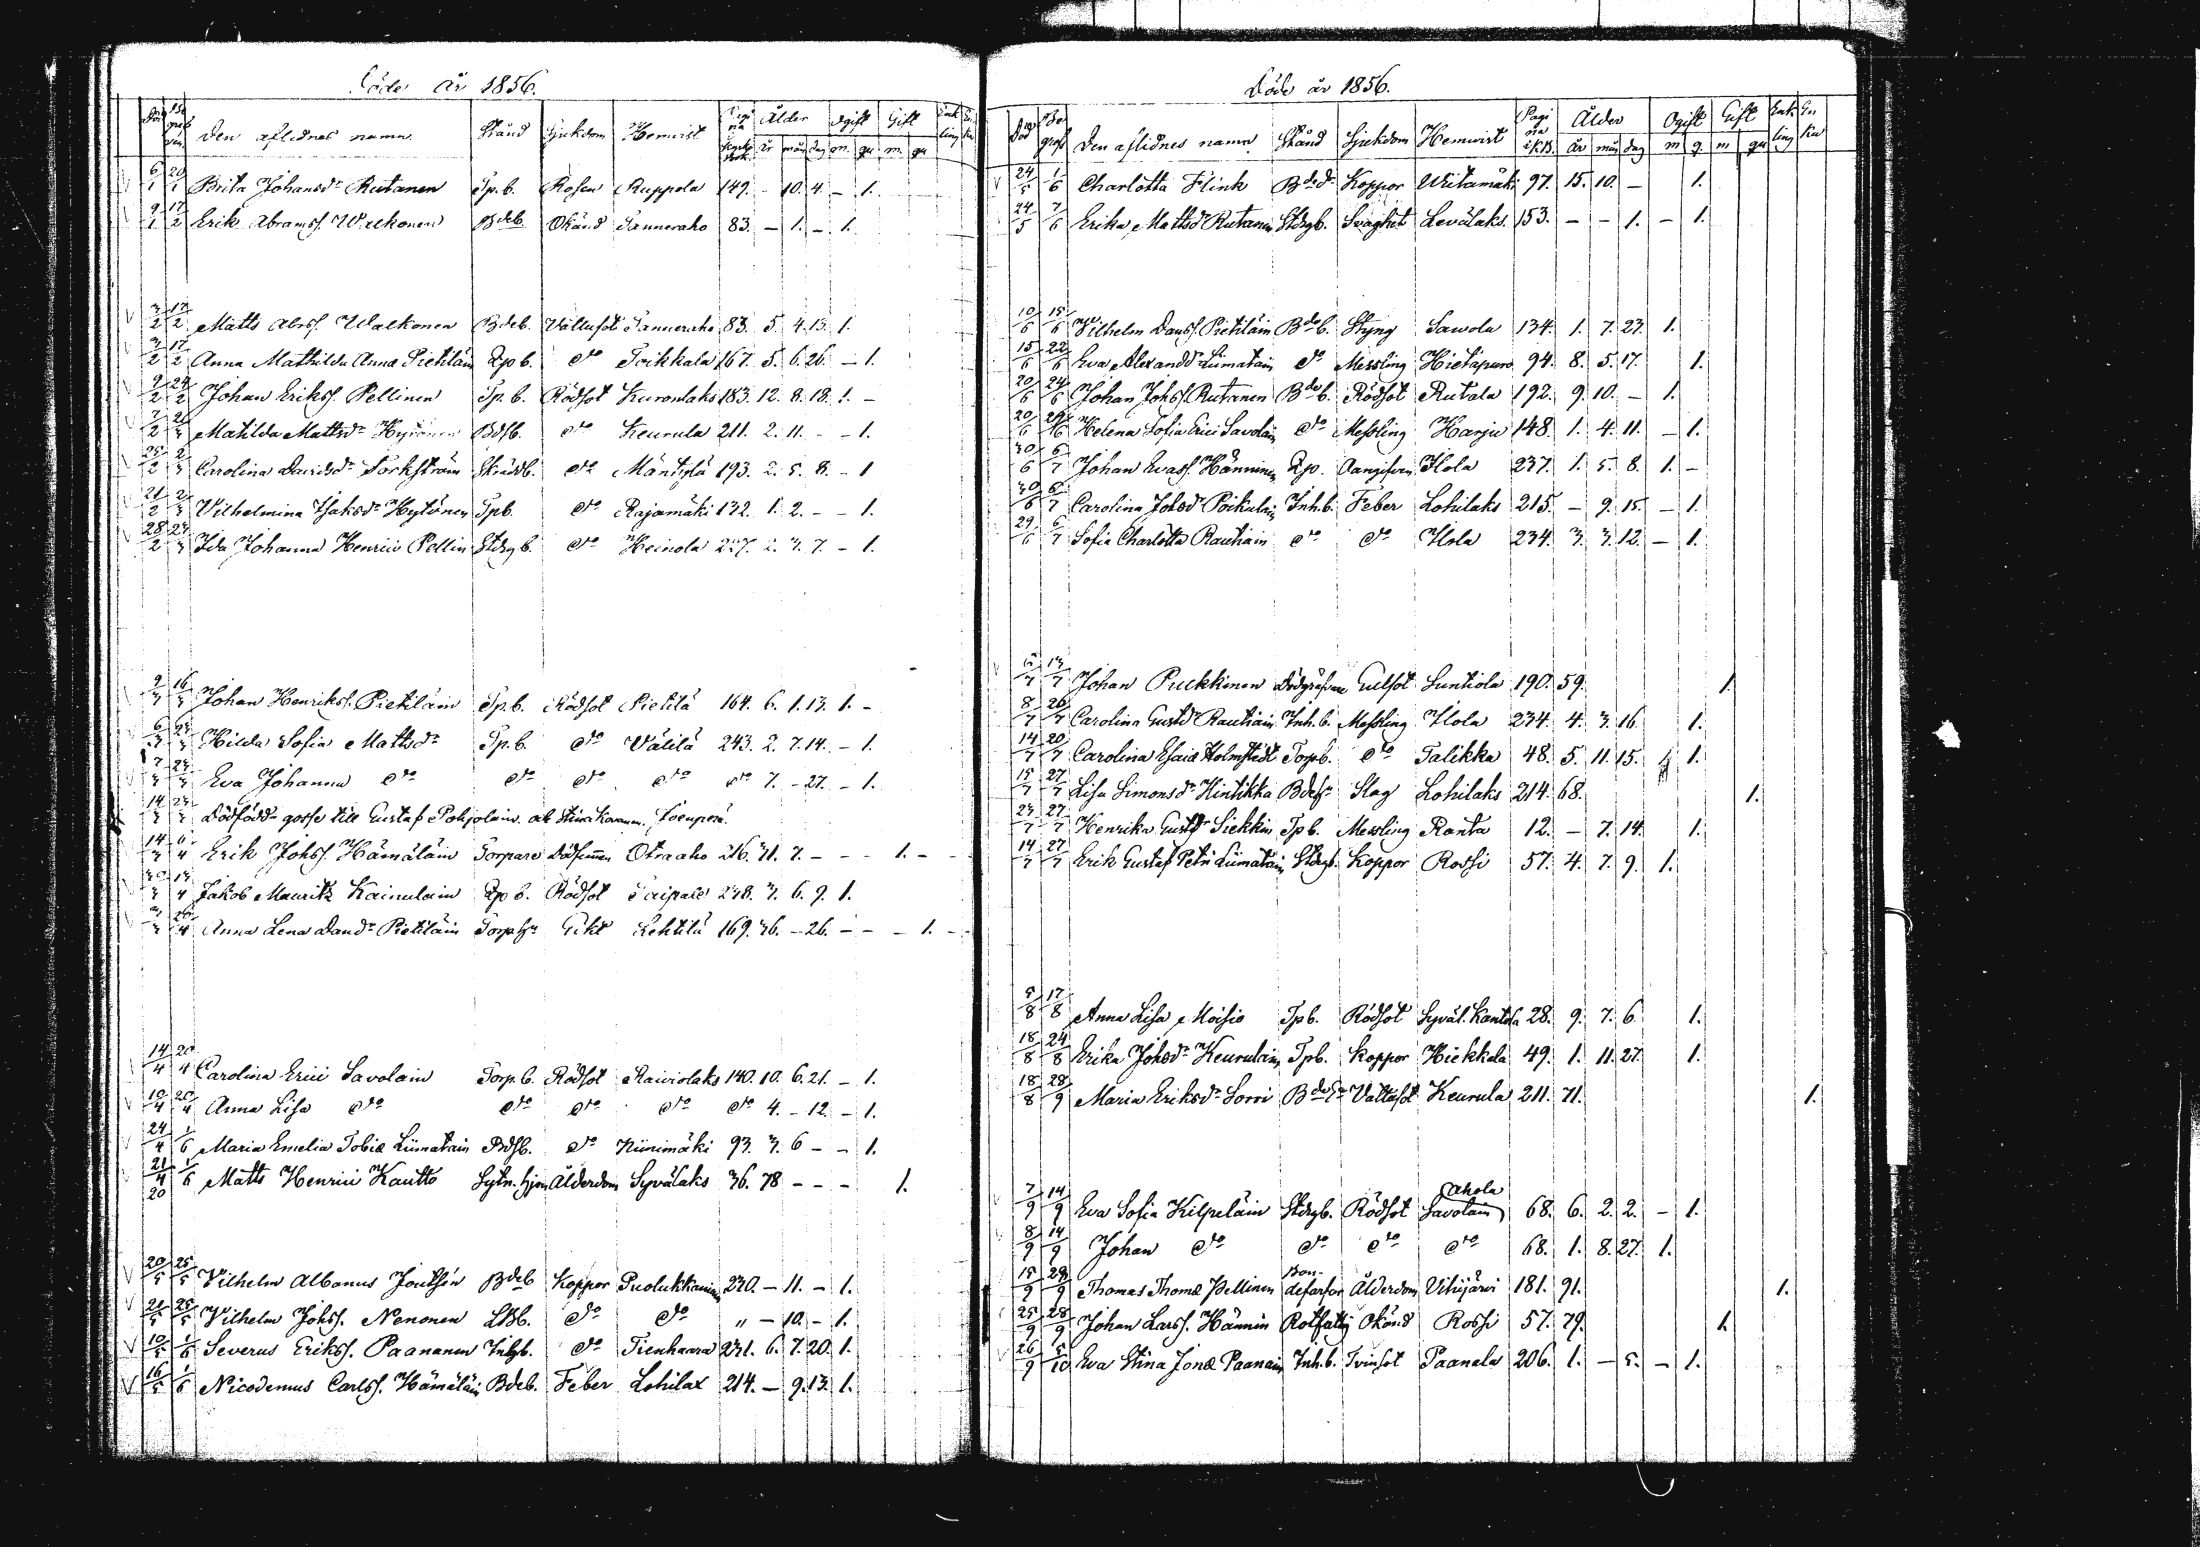 Döde år 1856.
Död Be graf ven Den aflidnes namn Stånd Sjukdom Hemvist Pagi na Kyrko bok Ålder Ogift Gift Enk ling En ka
år mån dag m. qu m. qu
6/1 20/1 Brita Johansdr Rutanen Tp.b. Rosen Ruppola 149. - 10. 4. - 1.
9/1 17/2 Erik Abramss. Walkonen Bdeb. Okänd Tanneraho 83. - 1. - 1.
3/2 17/2 Matts Abrss. Walkonen Bdeb. Vattusot Tanneraho 83. 5. 4. 13. 1.
3/2 17/2 Anna Mathilda Anna Pietiläin Qpb. dto Toikkala 167. 5. 6. 26. - 1.
9/2 24/2 Johan Erikss. Pellinen Tp.b. Rödsot Kuronlaks 183. 12. 8. 18. 1. -
Matilda Mattsdr Hytönen Bdsb. dto Keurula 211. 2. 11. - - 1.
Carolina Davidsdr Torkström Skrädb. dto Mäntylä 193. 2. 5. 8. - 1
21/2 2/3 Vilhelmina Isaksdr Hytönen Tpb. dto Rajamäki 132. 1. 2. - - 1.
28/2 23/3 Ida Johanna Henrici Pellin Stdrgb. dto Heinola 3. 7. - 1.
9/3 16/3 Johan Henrikss. Pietiläin Tp.b. Rödsot Pietilä 164. 6. 1. 13. 1. -
6/3 23/3 Hilda Sofia Mattsdr Tp.b. dto Välilä 243. 2. 7. 14. - 1.
7/3 23/3 Eva Johanna dto dto dto dto dto 7. - 27. - 1.
14/3 23/3 Dödfödd gosse till Gustaf Pohjolain
14/3 6/4 Erik Johss. Hämäläin Torpare Otraaho 216. 31. 7. - - - 1. -
30/3 13/4 Jakob Mauritz Kainulain Qpb. Rödsot Taipale 238. 3. 6. 9. 1.
Anna Lena Davdr Pietiläin Torphu Gikt Lehtilä 169. 36. - 26. - - - 1. -
14/4 20/4 Carolina Erici Savolain Torp.b. Rödsot Raiviolaks 140. 10. 6. 21. - 1.
19/4 20/4 Anna Lisa dto dto dto dto dto 4. - 12. - 1.
24/4 1/6 Maria Emelia Tobiæ Liimatain Bdsb. dto Niinimäki 93. 3. 6 - - 1.
21/4 1/6 Matts Henrici Kautto Sytn.hjon Ålderdom Syvälaks 36. 78 - - - 1.
20
20/5 25/5 Vilhelm Albanus Joutsén Bdeb Koppor Puolukkainen 230. - 11. - 1.
21/5 25/5 Vilhelm Johss. Nenonen dto dto " - 10. - 1.
10/5 1/6 Severus Erikss. Paananen Inhyb. dto Tienhaara 231. 6. 7. 20. 1.
16/5 1/6 Nicodemus Carlss. Hämäläin Bdeb. Feber Lohilax 214. - 9. 13. 1.
Döde år 1856.
Död Be graf Den aflidnes namn Stånd Sjukdom Hemvist Pagi na i K.B. Ålder Ogift Gift Enk ling En ka
år mån dag m q m qu
24/5 1/6 Charlotta Flink Bdedr Koppor Wiitamäki 97. 15. 10. - 1.
24/5 7/6 Erika Mattsd Rutanen Stdrgb. Svaghet Levälaks. 153. - - 1. - 1.
10/6 15/6 Vilhelm Davss. Pietiläin Bdeb. Styng Sawola 134. 1. 7. 23. 1.
15/6 22/6 Eva Alexandr Liimatain dto Messling Hietapuro 94. 8. 5. 17. 1.
20/6 24/6 Johan Johss. Rutanen Bdeb. Rödsot Rutala 192. 9. 10. - 1.
20/6 29/6 Helena Sofia Erici Savolain dto Messling Harju 148. 1. 4. 11. - 1.
30/6 6/7 Johan Evass. Hänninen Qp. Oangifven Ilola 237. 1. 5. 8. 1. -
30/6 6/7 Carolina Johsd Poikulain Inh.b. Feber Lohilaks 215. - 9. 15. - 1.
29/6 6/7 Sofia Charlotta Rautiain dto dto Ilola 234. 3. 3. 12. - 1.
5/7 13/7 Johan Puckkinen Dödgräfvare Gulsot Suntiola 190. 59. 1.
8/7 20/7 Carolina Gustdr Rautiain Inh.b. Messling Ilola 234. 4. 3. 16. 1.
14/7 20/7 Carolina Esaiæ Holmstedt Torpb. dto Talikka 48. 5. 11. 15. 1.
15/7 27/7 Lisa Simonsdr Hintikka Bdehu Slag Lohilaks 214. 68. 1.
23/7 27/7 Henrika Gustdr Siekkin Tpb. Messling Ranta 12. - 7. 14. 1.
14/7 27/7 Erik Gustaf Petri Liimatain Stdrgb. Koppor Rossi 57. 4. 7. 9. 1.
5/8 17/8 Anna Lisa Moisio Tpb. Rödsot Syväl. Kantola 28. 9. 7. 6. 1.
18/8 24/8 Erika Johsdr Keurulain Tpb. Koppor Hiekkala 49. 1. 11. 27. 1.
18/8 28/9 Maria Eriksdr Sorri Bdeea Vattusot Keurula 211. 71. 1.
7/9 14/9 Eva Sofia Kilpeläin Stdrgb. Rödsot Savolain Ahola 68. 6. 2. 2. - 1.
8/9 14/9 Johan dto dto dto dto 68. 1. 8. 27. 1.
15/9 28/9 Thomas Thomæ Pellinen Bondefarfar Ålderdom Vihijärvi 181. 91. 1.
25/9 28/9 Johan Larss. Hännin Rotfattig Okänd Rossi 57. 79. 1.
26/9 5/10 Eva Stina Jonæ Paanain Inh.b. Tvinsot Paanala 206. 1. - 5. - 1.